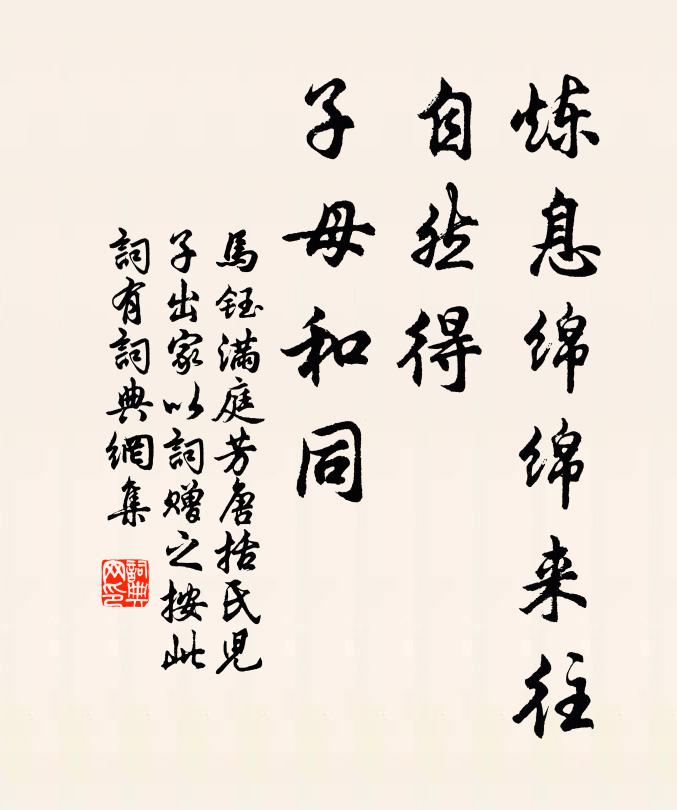 炼息绵绵来往
自然得
子母和同
馬鈺满庭芳唐括氏児
子出家以詞赠之按此
詞有詞典網集
詞典
网印